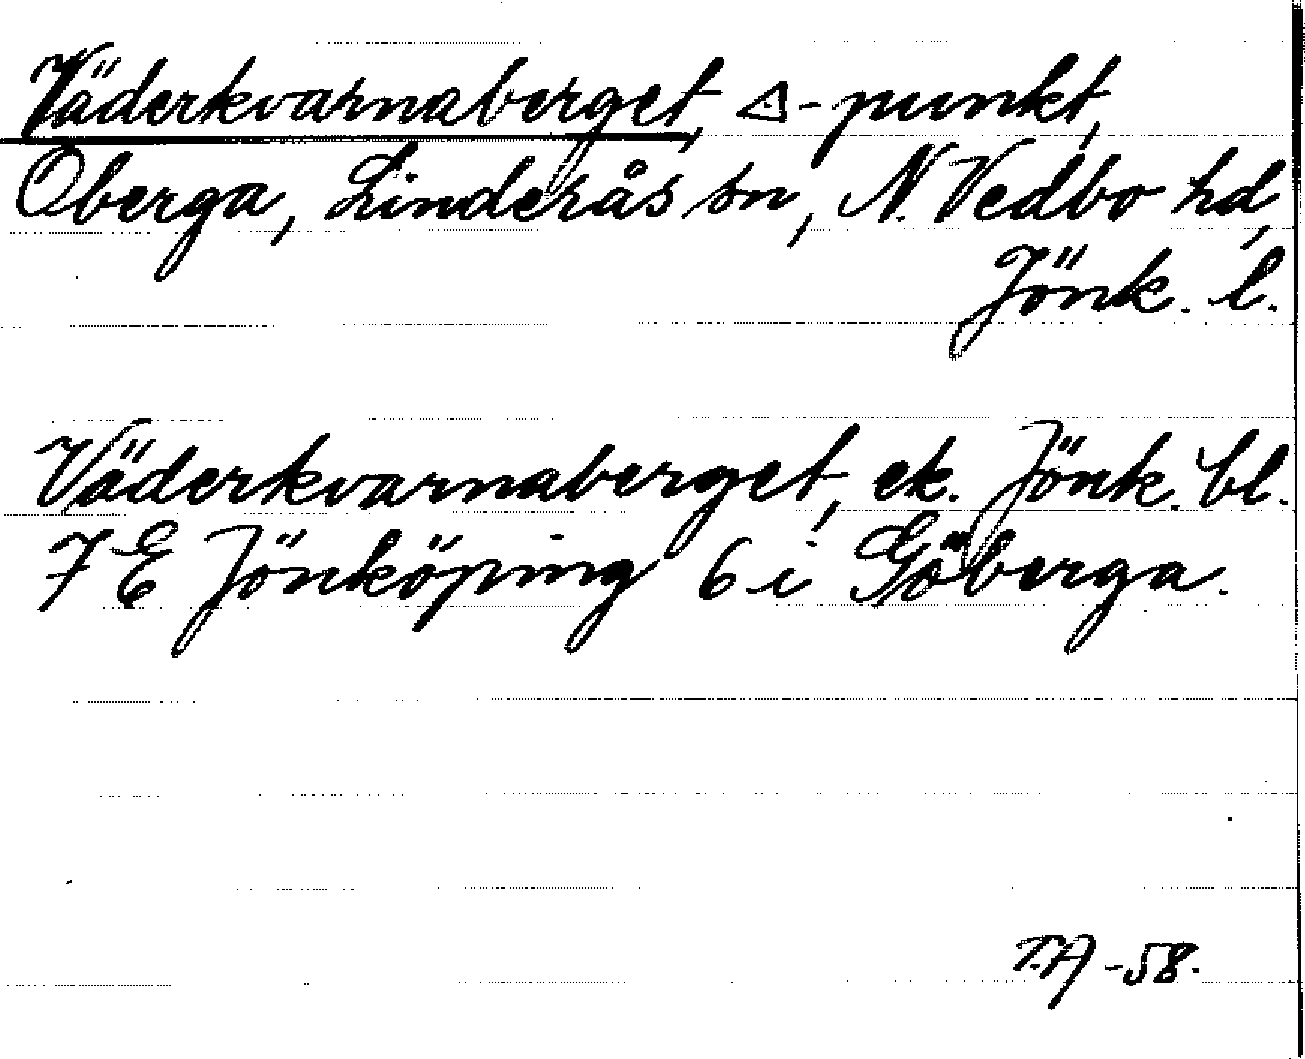 Väderkvarnaberget, △-punkt,
Oberga, Linderås sn, N. Vedbo hd,
Jönk. l.
Väderkvarnaberget, ek. Jönk. bl.
7 E Jönköping 6 i Göberga.
T.A -58.